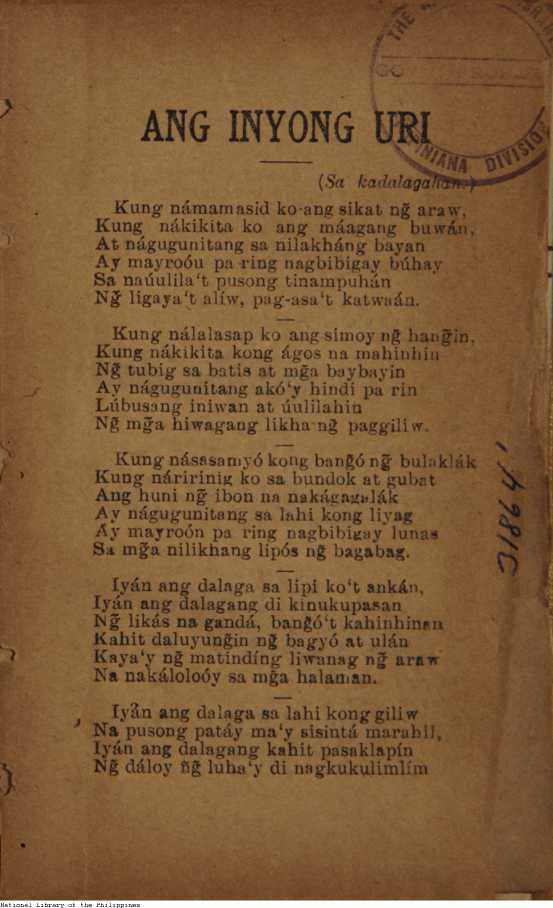 ANG INYONG URI
(Sa kadalagahan.)
Kung námamasid ko ang sikat ng̃ araw,
Kung nákikita ko ang máagang buwán,
At nágugunitang sa nilakháng bayan
Ay mayroóu pa ring nagbibigay búhay
Sa naúulila‘t pusong tinampuhán
Ng̃ ligaya‘t alíw, pag-asa‘t katwaán.
Kung nálalasap ko ang simoy ng̃ hang̃in,
Kung nákikita kong ágos na mahinhin
Ng̃ tubig sa batis at mg̃a baybayin
Ay nágugunitang akó‘y hindi pa rin
Lúbusang iniwan at úulilahin
Ng̃ mg̃a hiwagang likha ng̃ paggiliw.
Kung násasamyó kong bang̃ó ng̃ bulaklák
Kung náririnig ko sa bundok at gubat
Ang huni ng̃ ibon na nakágagalák
Ay nágugunitang sa lahi kong liyag
Ay mayroón pa ring nagbibigay lunas
Sa mg̃a nilikhang lipós ng̃ bagabag.
Iyán ang dalaga sa lipi ko‘t ankán,
Iyán ang dalagang di kinukupasan
Ng̃ likás na gandá, bang̃ó‘t kahinhinan
Kahit daluyung̃in ng̃ bagyó at ulán
Kaya‘y ng̃ matindíng liwanag ng̃ araw
Na nakáloloóy sa mg̃a halaman.
Iyán ang dalaga sa lahi kong giliw
Na pusong patáy ma‘y sisintá marahil,
Iyán ang dalagang kahit pasaklapín
Ng̃ dáloy ng̃ luha‘y di nagkukulimlím
National Library of the Philippines